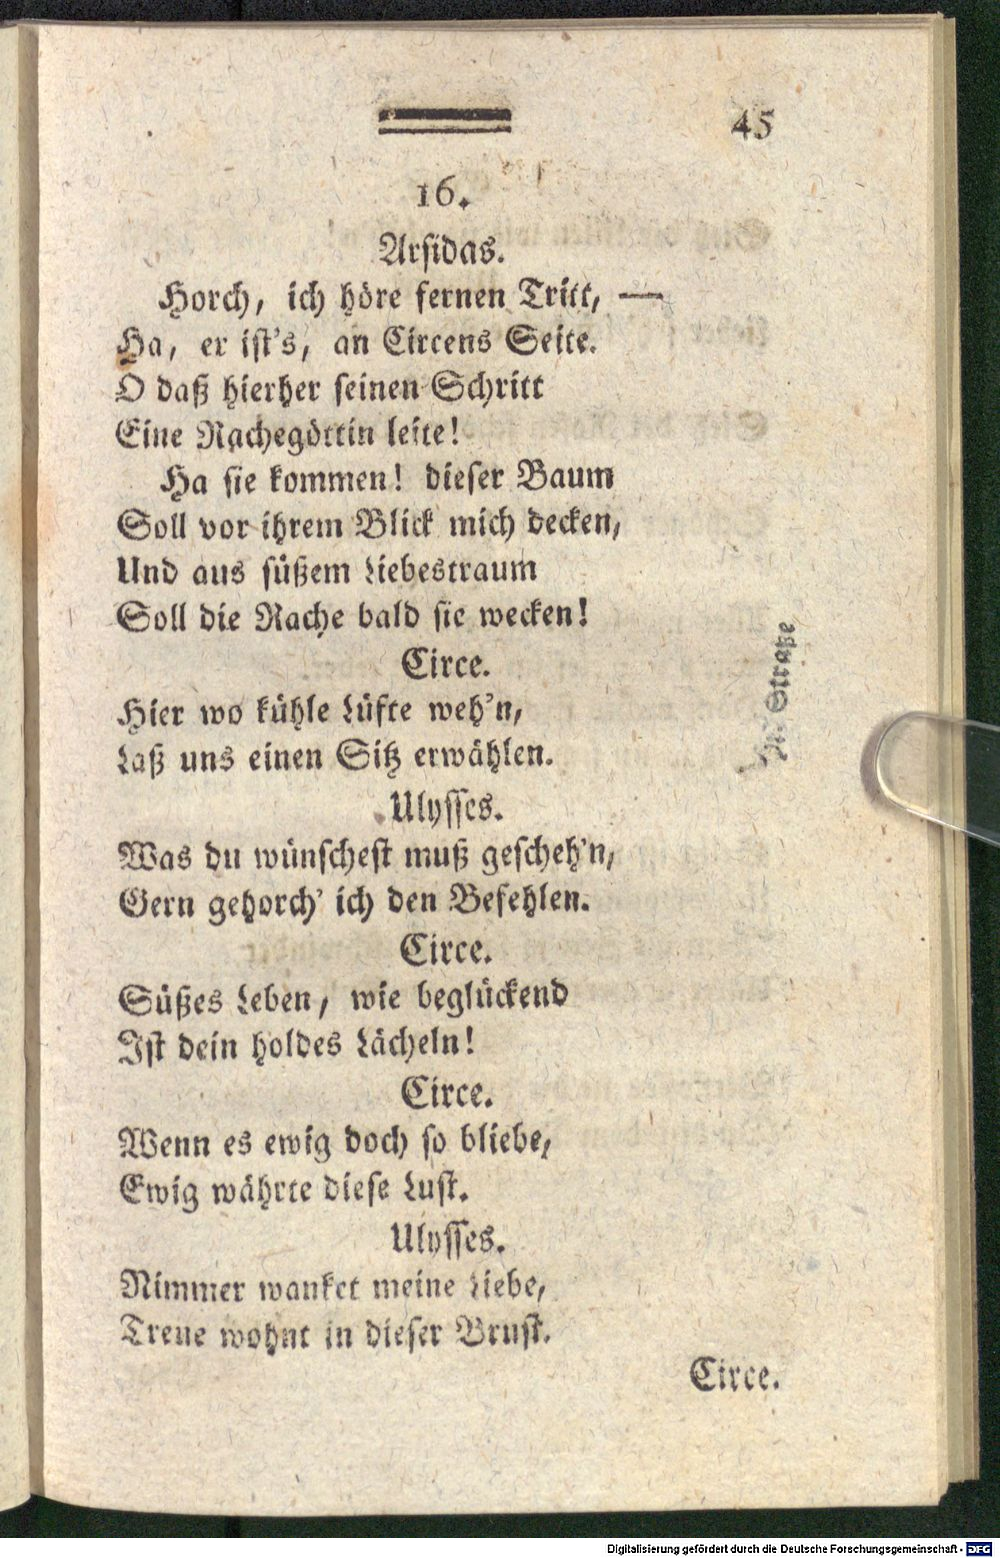 45
16.
Arsidas.
Horch, ich höre fernen Tritt, —
Ha, er ist's, an Circens Seite.
O daß hierher seinen Schritt
Eine Rachegöttin leite!
Ha sie kommen! dieser Baum
Soll vor ihrem Blick mich decken,
Und aus süßem Liebestraum
Soll die Rache bald sie wecken!
Circe.
Hier wo kühle Lüfte weh'n,
Laß uns einen Sitz erwählen.
Ulysses.
Was du wünschest muß gescheh'n,
Gern gehorch' ich den Befehlen.
Circe.
Süßes Leben, wie beglückend
Ist dein holdes Lächeln!
Circe.
Wenn es ewig doch so bliebe,
Ewig währte diese Lust.
Ulysses.
Nimmer wanket meine Liebe,
Treue wohnt in dieser Brust.
Circe.
Straße
Digitalisierung gefördert durch die Deutsche Forschungsgemeinschaft - DFG